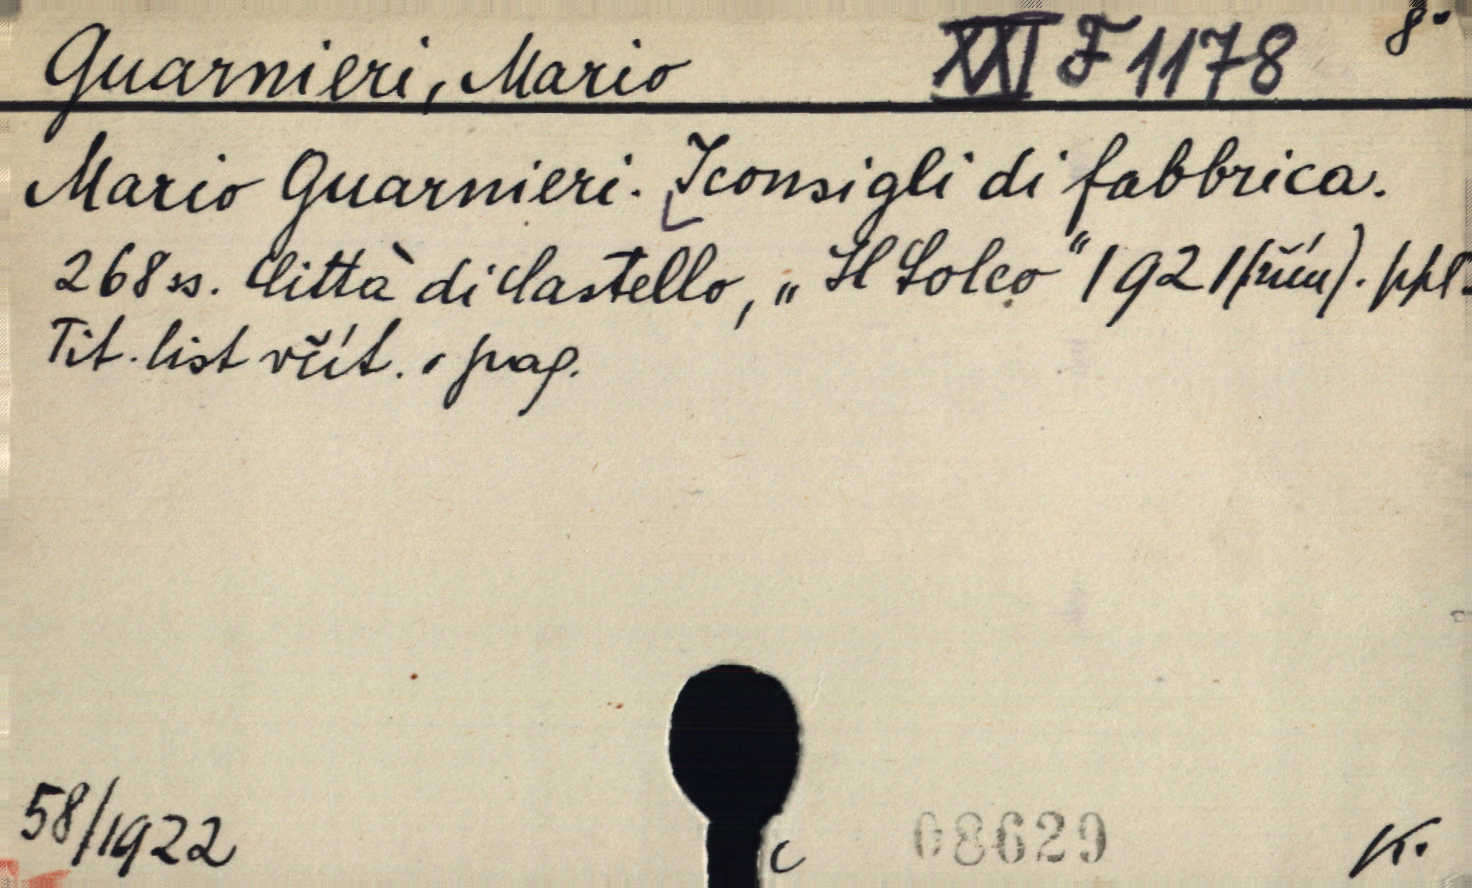 Guarnieri, Mario XXI F 1178 8°
Mario Guarnieri. I consigli di fabbrica.
268 ss. Città di Castello, „Il Solco“ 1921 (říj.). ppl.
Tit. list včít. v pag.
58/1922 c 08629 K.